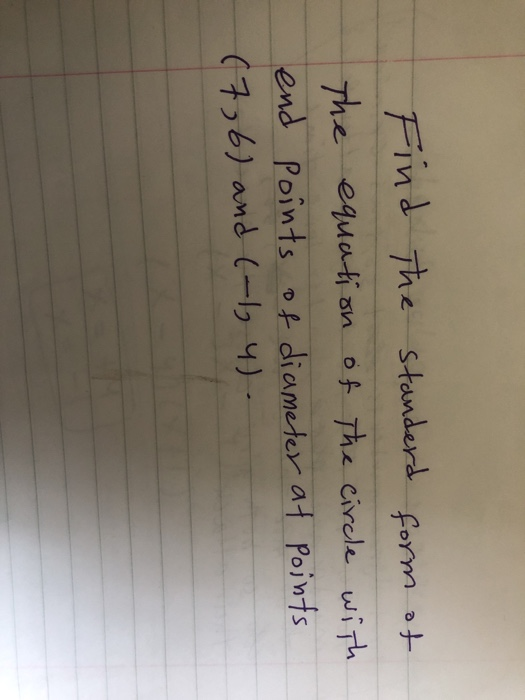 Find the standerd form of
The equation of The circle with
end points of diameter at points
(7,6) and (-1,4).